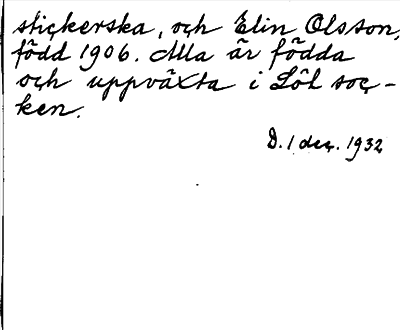 stickerska, och Elin Olsson,
född 1906. Alla är födda
och uppväxta i Löl soc-
ken.
D. 1 dec. 1932